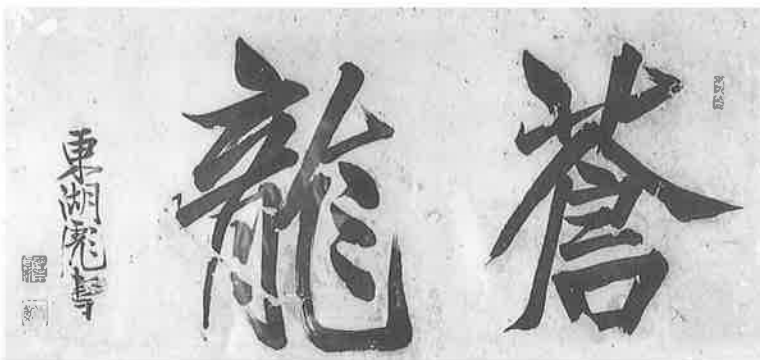 蒼龍
東湖彪書